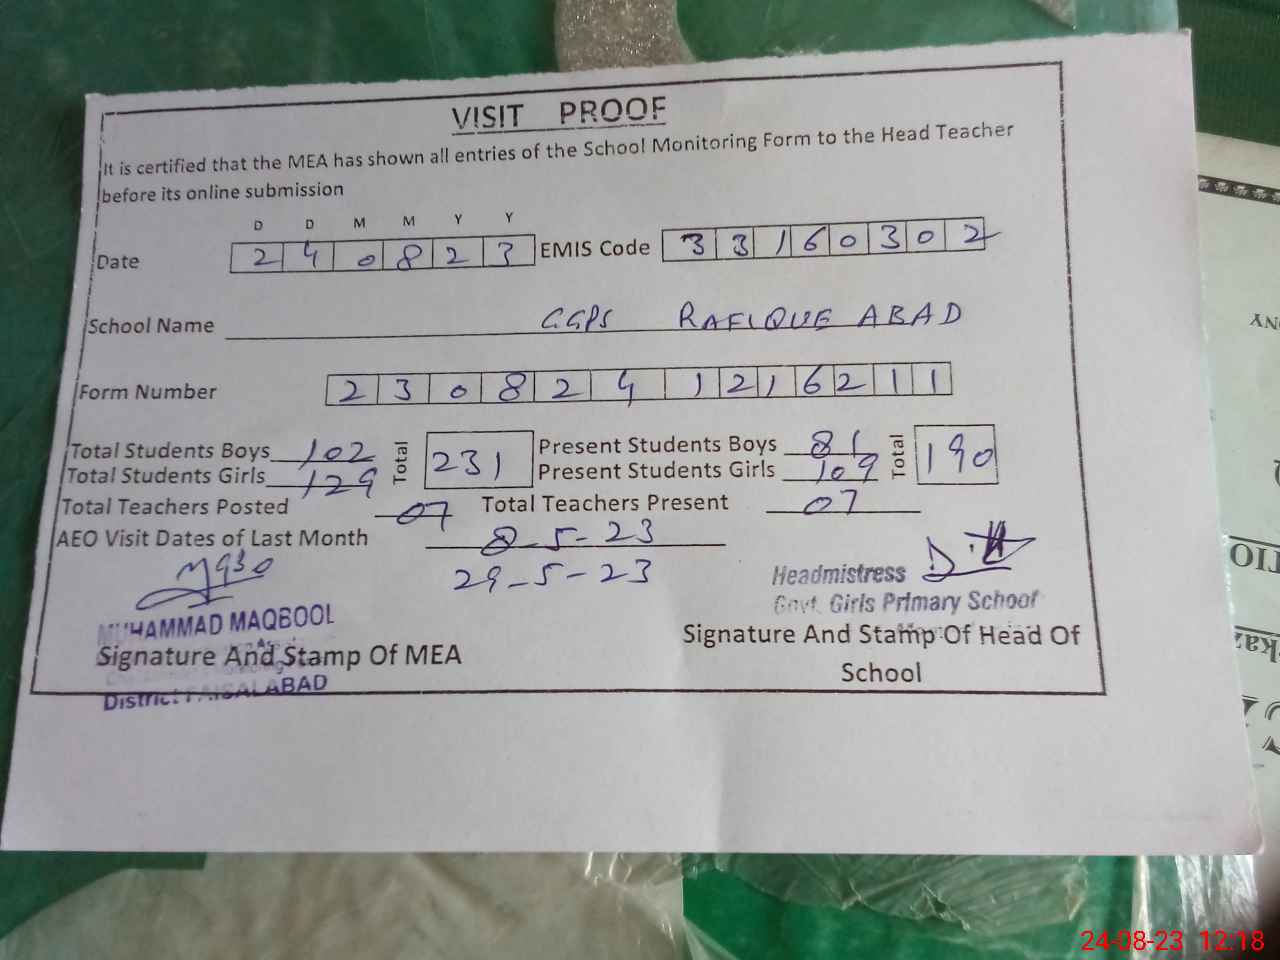 VISIT PROOF
It is certified that the MEA has shown all entries of the School Monitoring Form to the Head Teacher
before its online submission
D D M M Y Y
Date 2 4 0 8 2 3 EMIS Code 3 3 1 6 0 3 0 2
School Name GGPS RAFIQUE ABAD
Form Number 2 3 0 8 2 4 1 2 1 6 2 1 1
Total Students Boys 102 Total 231 Present Students Boys 81 Total 190
Total Students Girls 129 Present Students Girls 109
Total Teachers Posted 07 Total Teachers Present 07
AEO Visit Dates of Last Month 8-5-23
29-5-23
Headmistress
Govt. Girls Primary School
MUHAMMAD MAQBOOL
Signature And Stamp Of MEA
District FAISALABAD
Signature And Stamp Of Head Of
School
24-08-23 12:18